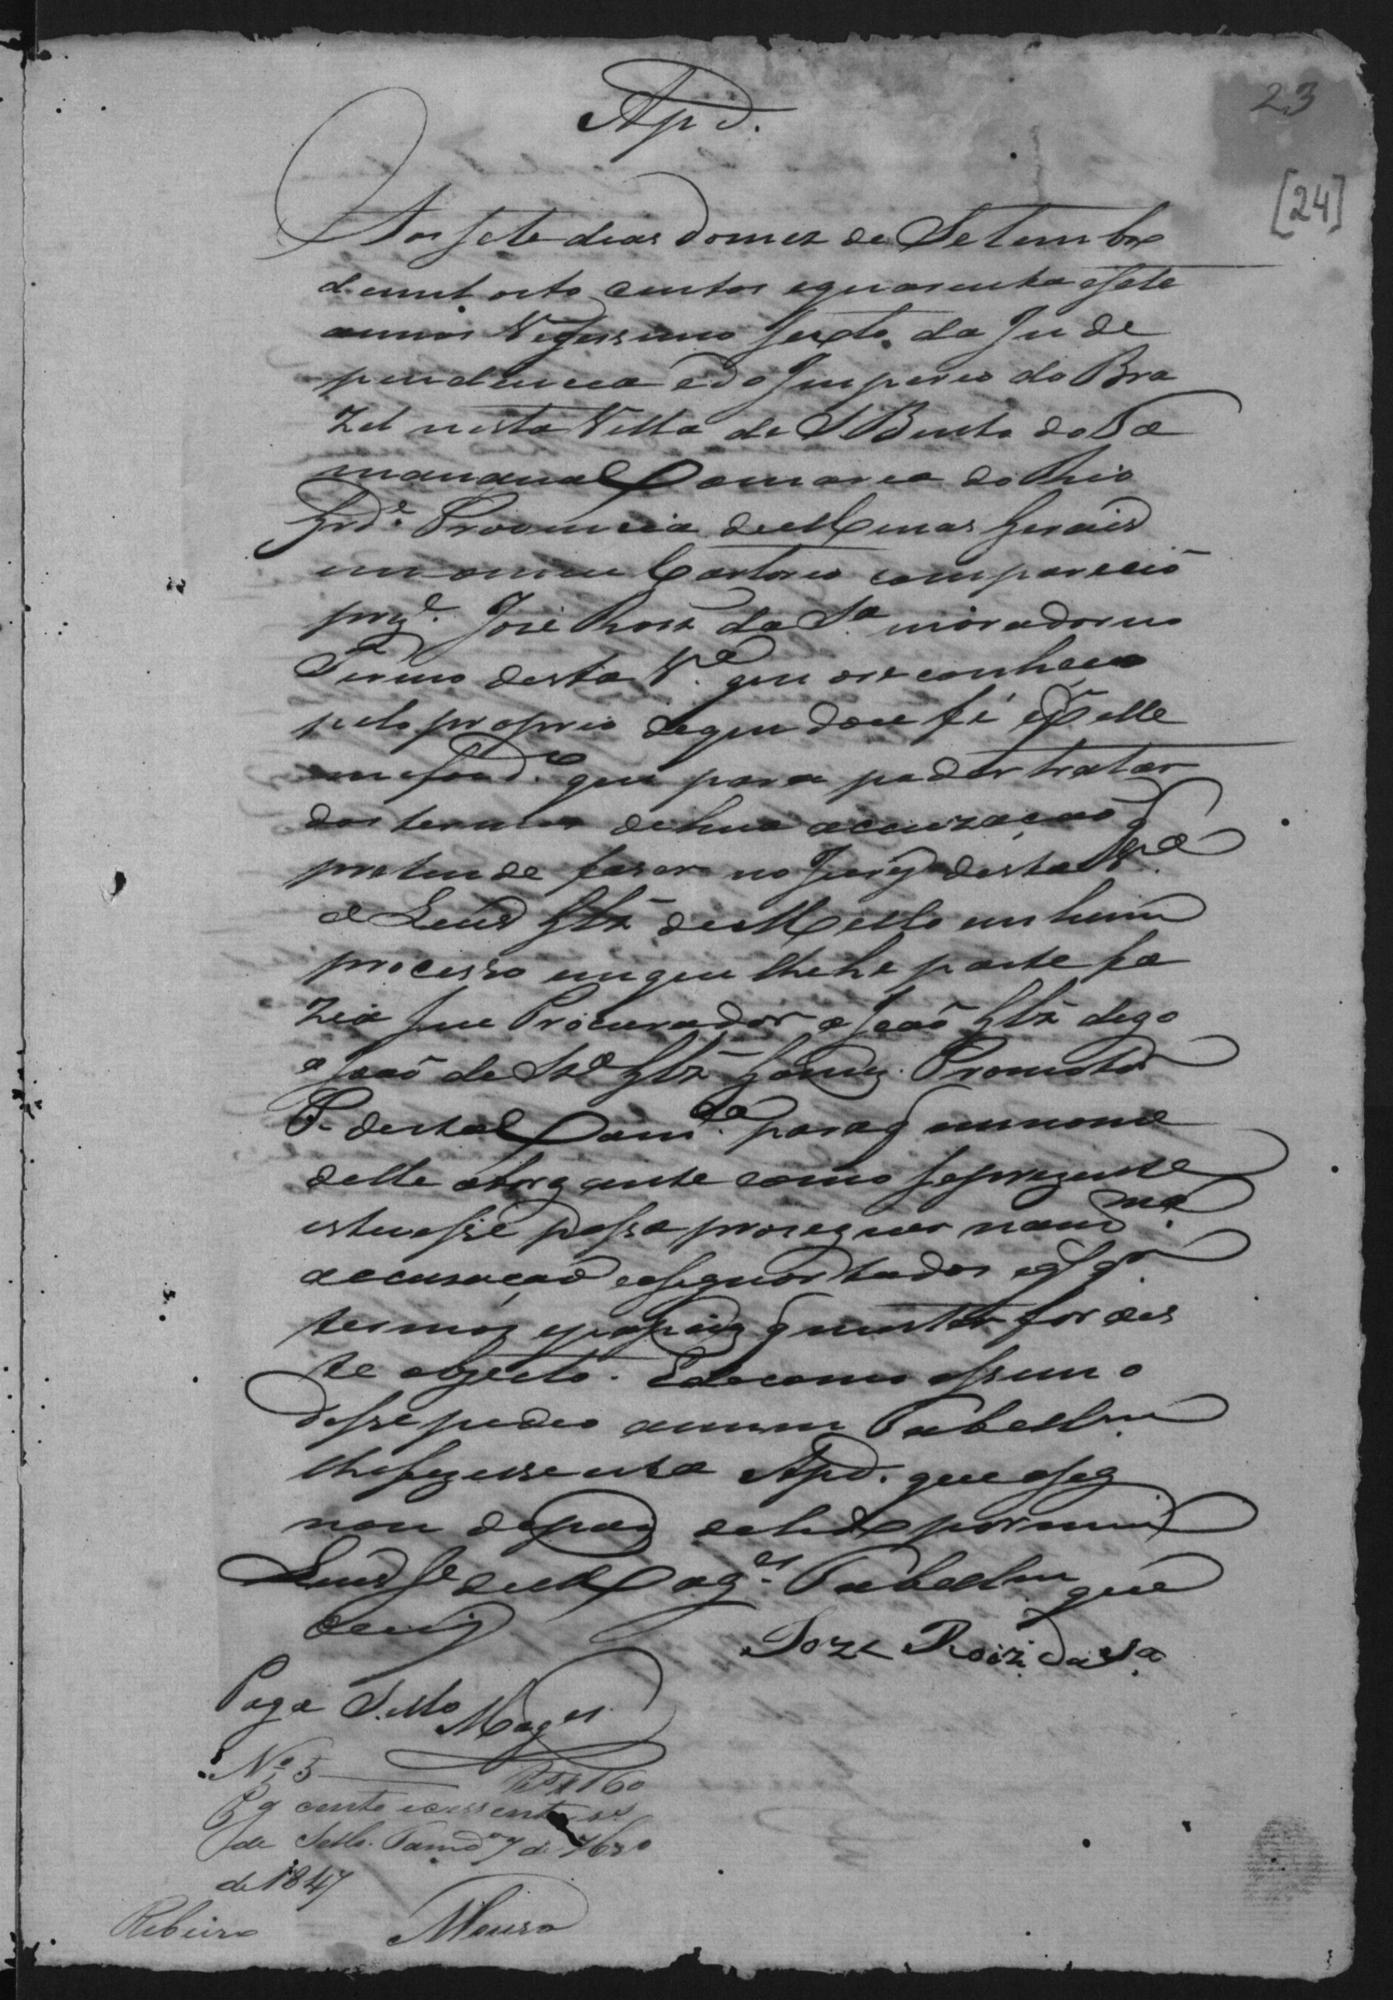 23
[24]
Apd.
Aos sete dias do mez de Setembro
de mil oito centos e quarenta e sete
annos Vigessimo sexto da Inde
pendencia e do Imperio do Bra
zil nesta Villa de S Bento do Ta
manduá Comarca do Rio
Grd.e Provincia de Minas Gerais
em o meu Cartorio compareceo
prez.e José Roiz da S.a morador no
Termo desta V.a que o reconheço
pelo proprio de que dou fé e q elle
me foi d.o que para poder tratar
dos termos de hua accuzação q
pretende fazer no Jury desta V.a
a Luis Glz de Mello em hum
processo em que lhe he parte fa
zia seu Procurador a João Glz digo
a João de S.d Glz Gomes Promotor
P. desta Com.ca para q em nome
delle otorgante como se prezente
estivesse possa proseguer na m.ma
accusação e asignar todos e qs qr
termos e papeis q mister for des
te objecto. E de como assim o
disse pedio a mim Tabellm
lhe fizesse esta Apd. que asig
nou depois de lida por mim
Luis J.e de Mag.es Tabellm que
escrevi
Joze Roiz da S.a
Paga Sello
Mag.es
N.o 5 Rs 160
Pg cento e cessenta rs
de Sello. Tamd.a 7 de 7br.o
de 1847
Ribeiro Moura